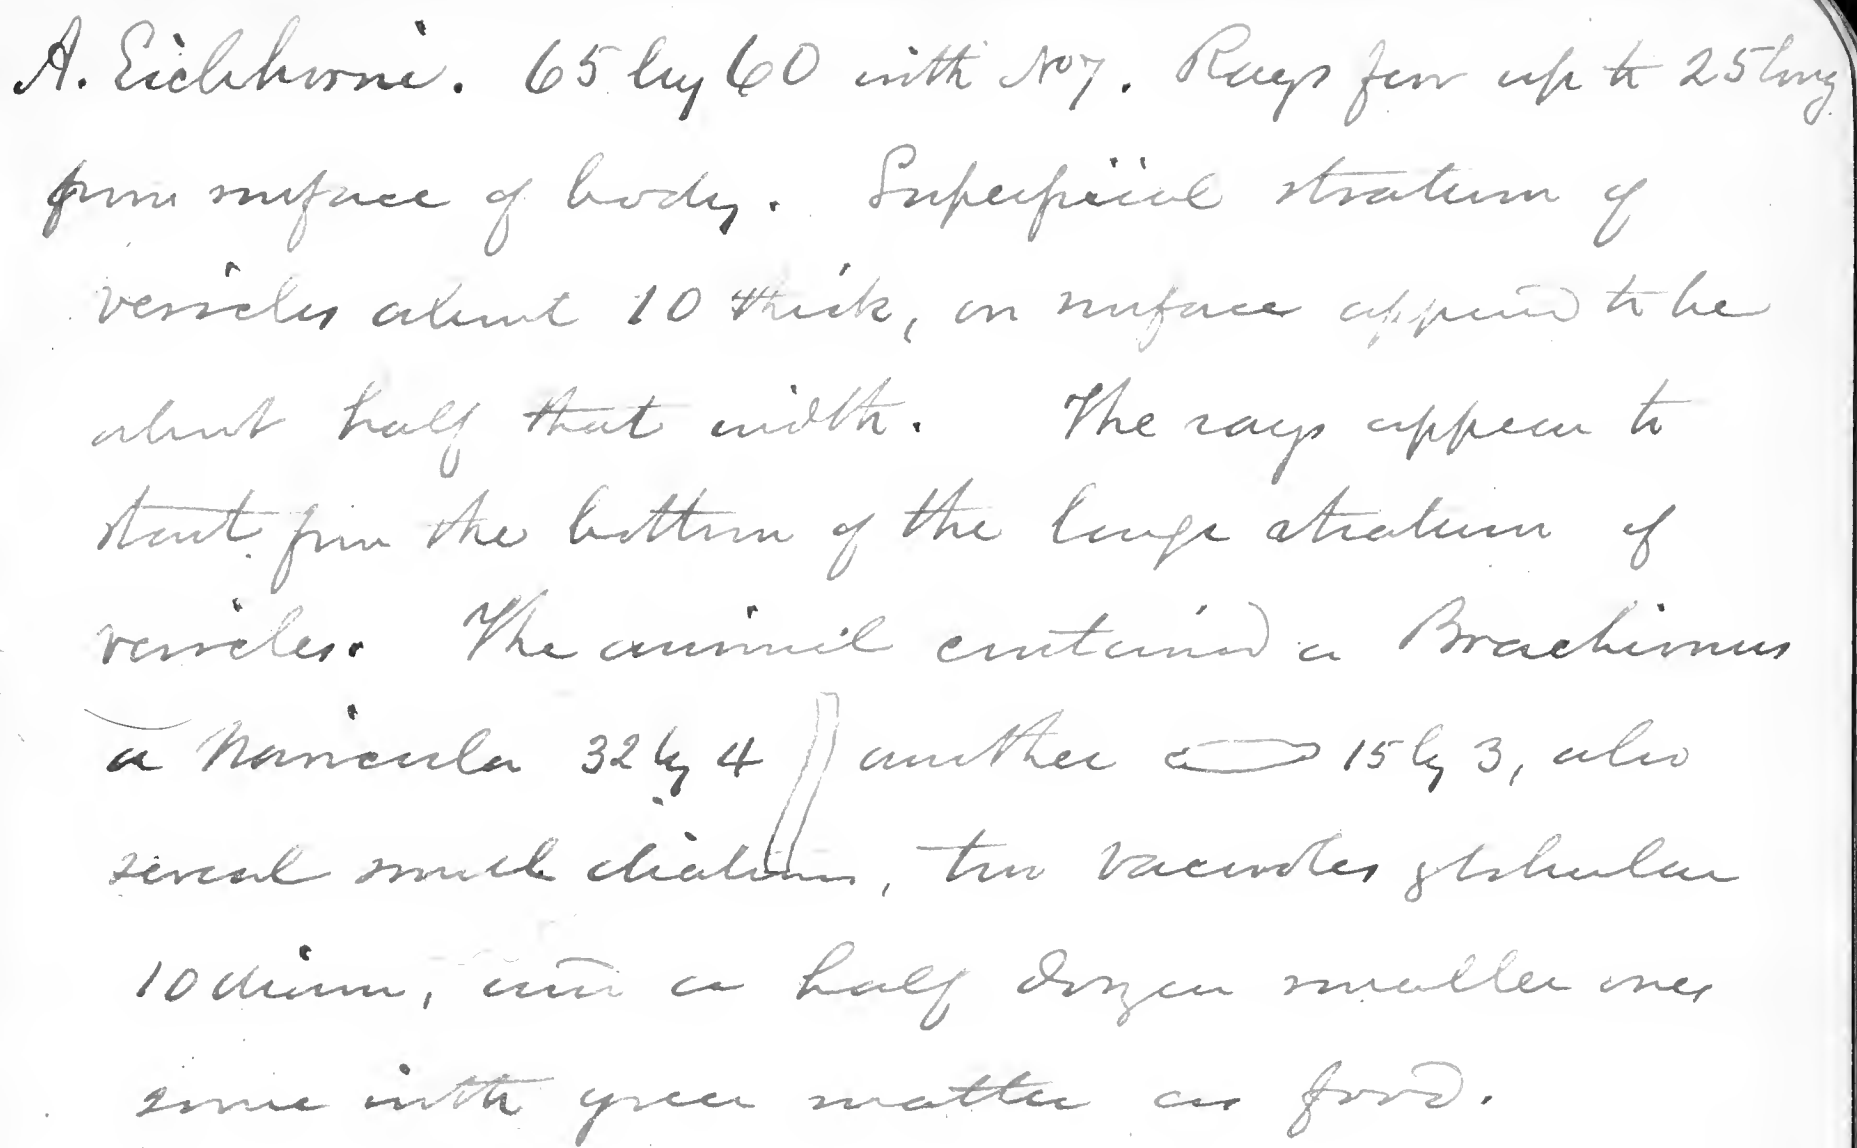 A. Eichhorni. 65 by 60 with No 7. Rays few up to 25 long
from surface of body. Superficial stratum of
vesicles about 10 thick, on surface appeared to be
about half that width. The rays appear to
start from the bottom of the large stratum of
vesicles. The animal contained a Brachionus
a Navicula 32 by 4 another 15 by 3, also
several small diatoms, two vacuoles globular
10 diam, and a half dozen smaller ones
some with green matter as food.